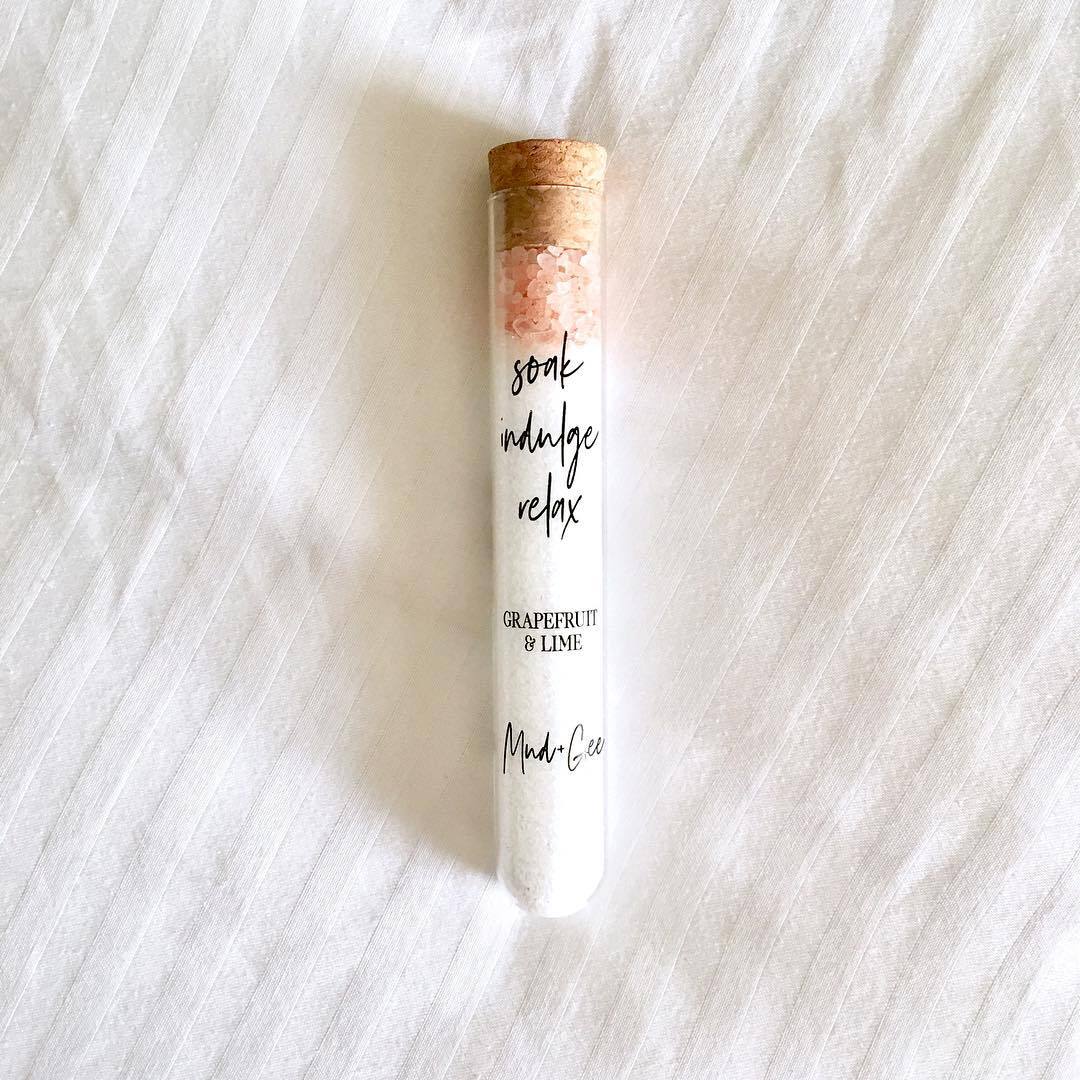 soak
indulge
relax
GRAPEFRUIT
& LIME
Mud+Gee